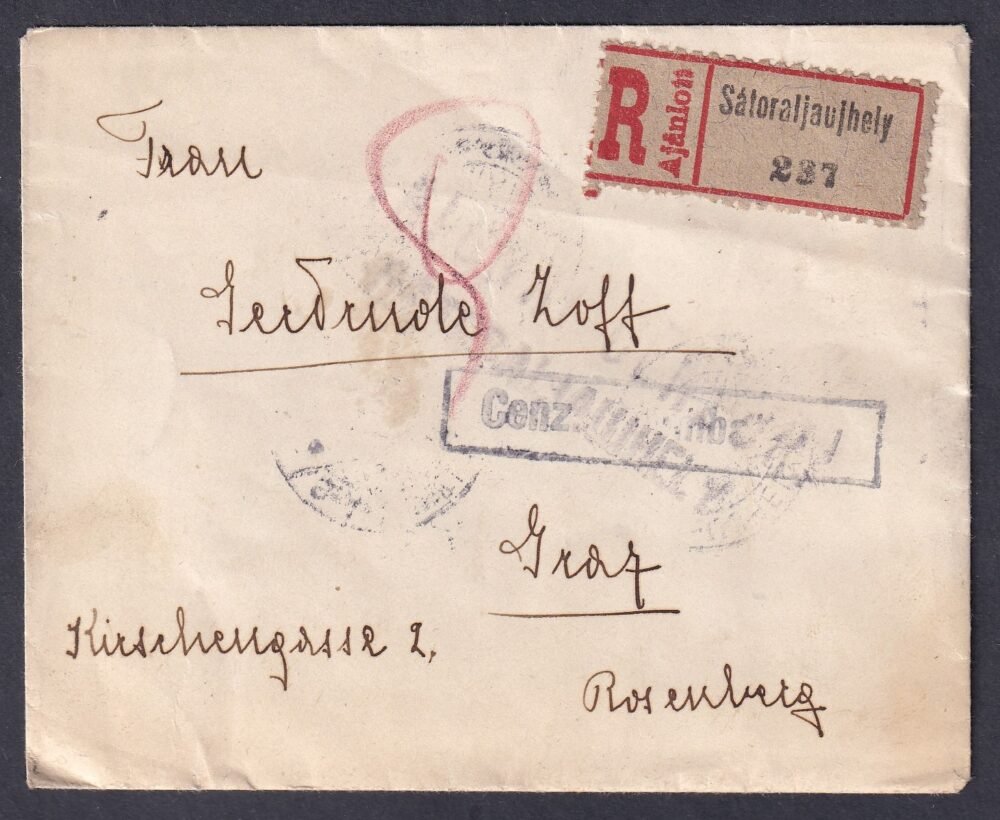 R Ajánlott
Sátoraljaujhely
237
Frau
Gerdrude Zoff
Cenz
Graz
Kirschengasse 2,
Rosenberg